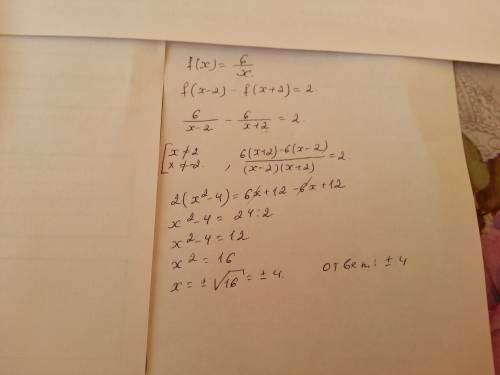 f(x) = 6/x.
f(x-2) - f(x+2) = 2.
6/(x-2) - 6/(x+2) = 2.
[x ≠ 2 x ≠ -2. , (6(x+2)-6(x-2))/((x-2)(x+2)) = 2.
2(x²-4) = 6x+12-6x+12
x²-4 = 24:2
x²-4 = 12
x² = 16
x = ±√16 = ±4. ответ: ±4